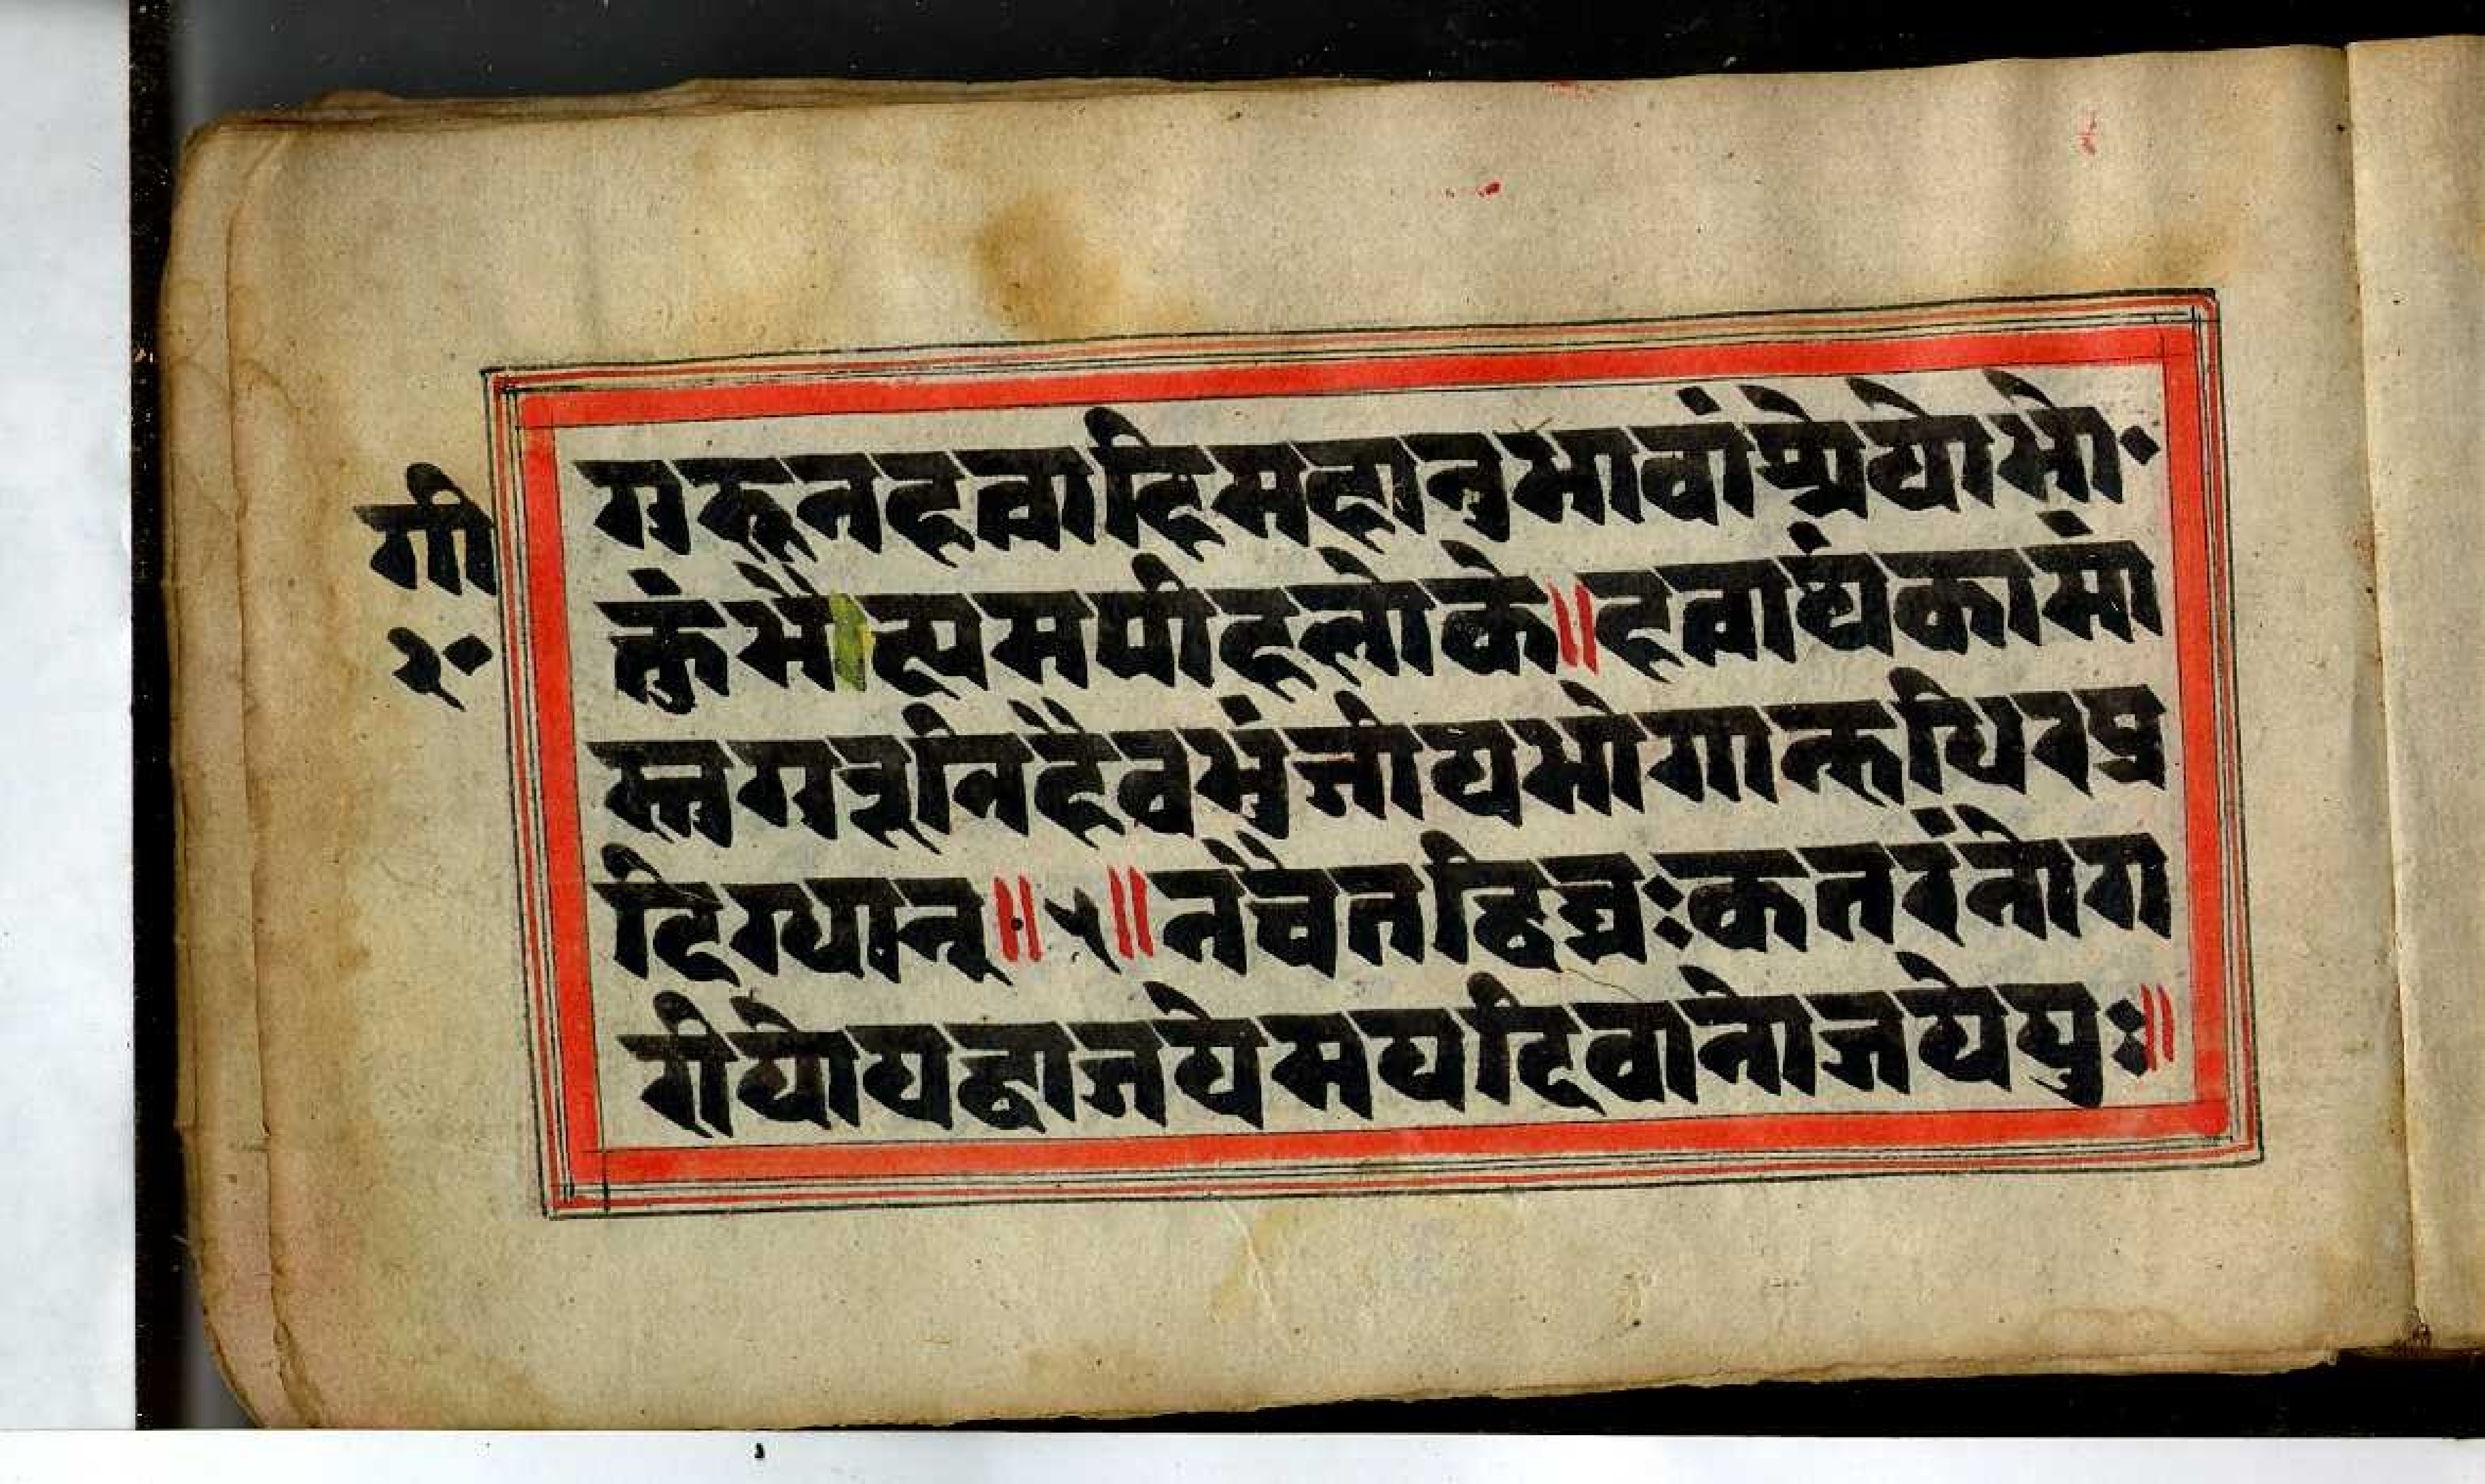 गी
२
गुरूनहत्वाहिमहानुभावांश्रेयोभो
क्तुंभैक्ष्यमपीहलोके॥हत्वार्थकामां
स्तुगुरूनिहैवभुंजीयभोगान्रुधिरप्र
दिग्धान्॥५॥नचैतद्विद्मःकतरंनोग
रीयोयद्वाजयेमयदिवानोजयेयुः॥